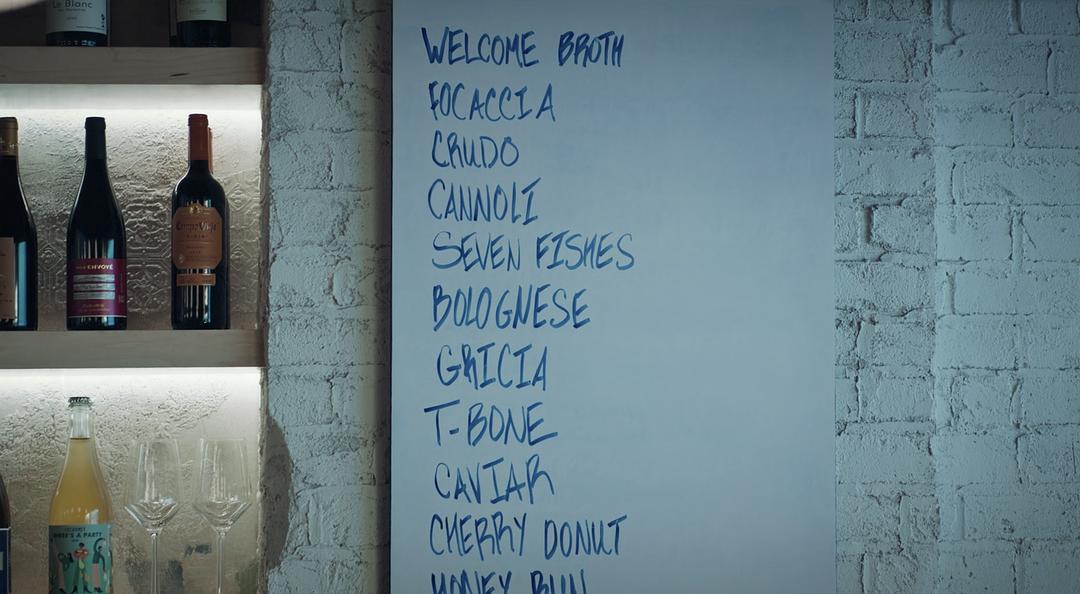 Le Blanc
ENVOYÉ
Campo Viejo
RIOJA
HERE'S A PARTY
WELCOME BROTH
FOCACCIA
CRUDO
CANNOLI
SEVEN FISHES
BOLOGNESE
GRICIA
T-BONE
CAVIAR
CHERRY DONUT
HONEY BUN